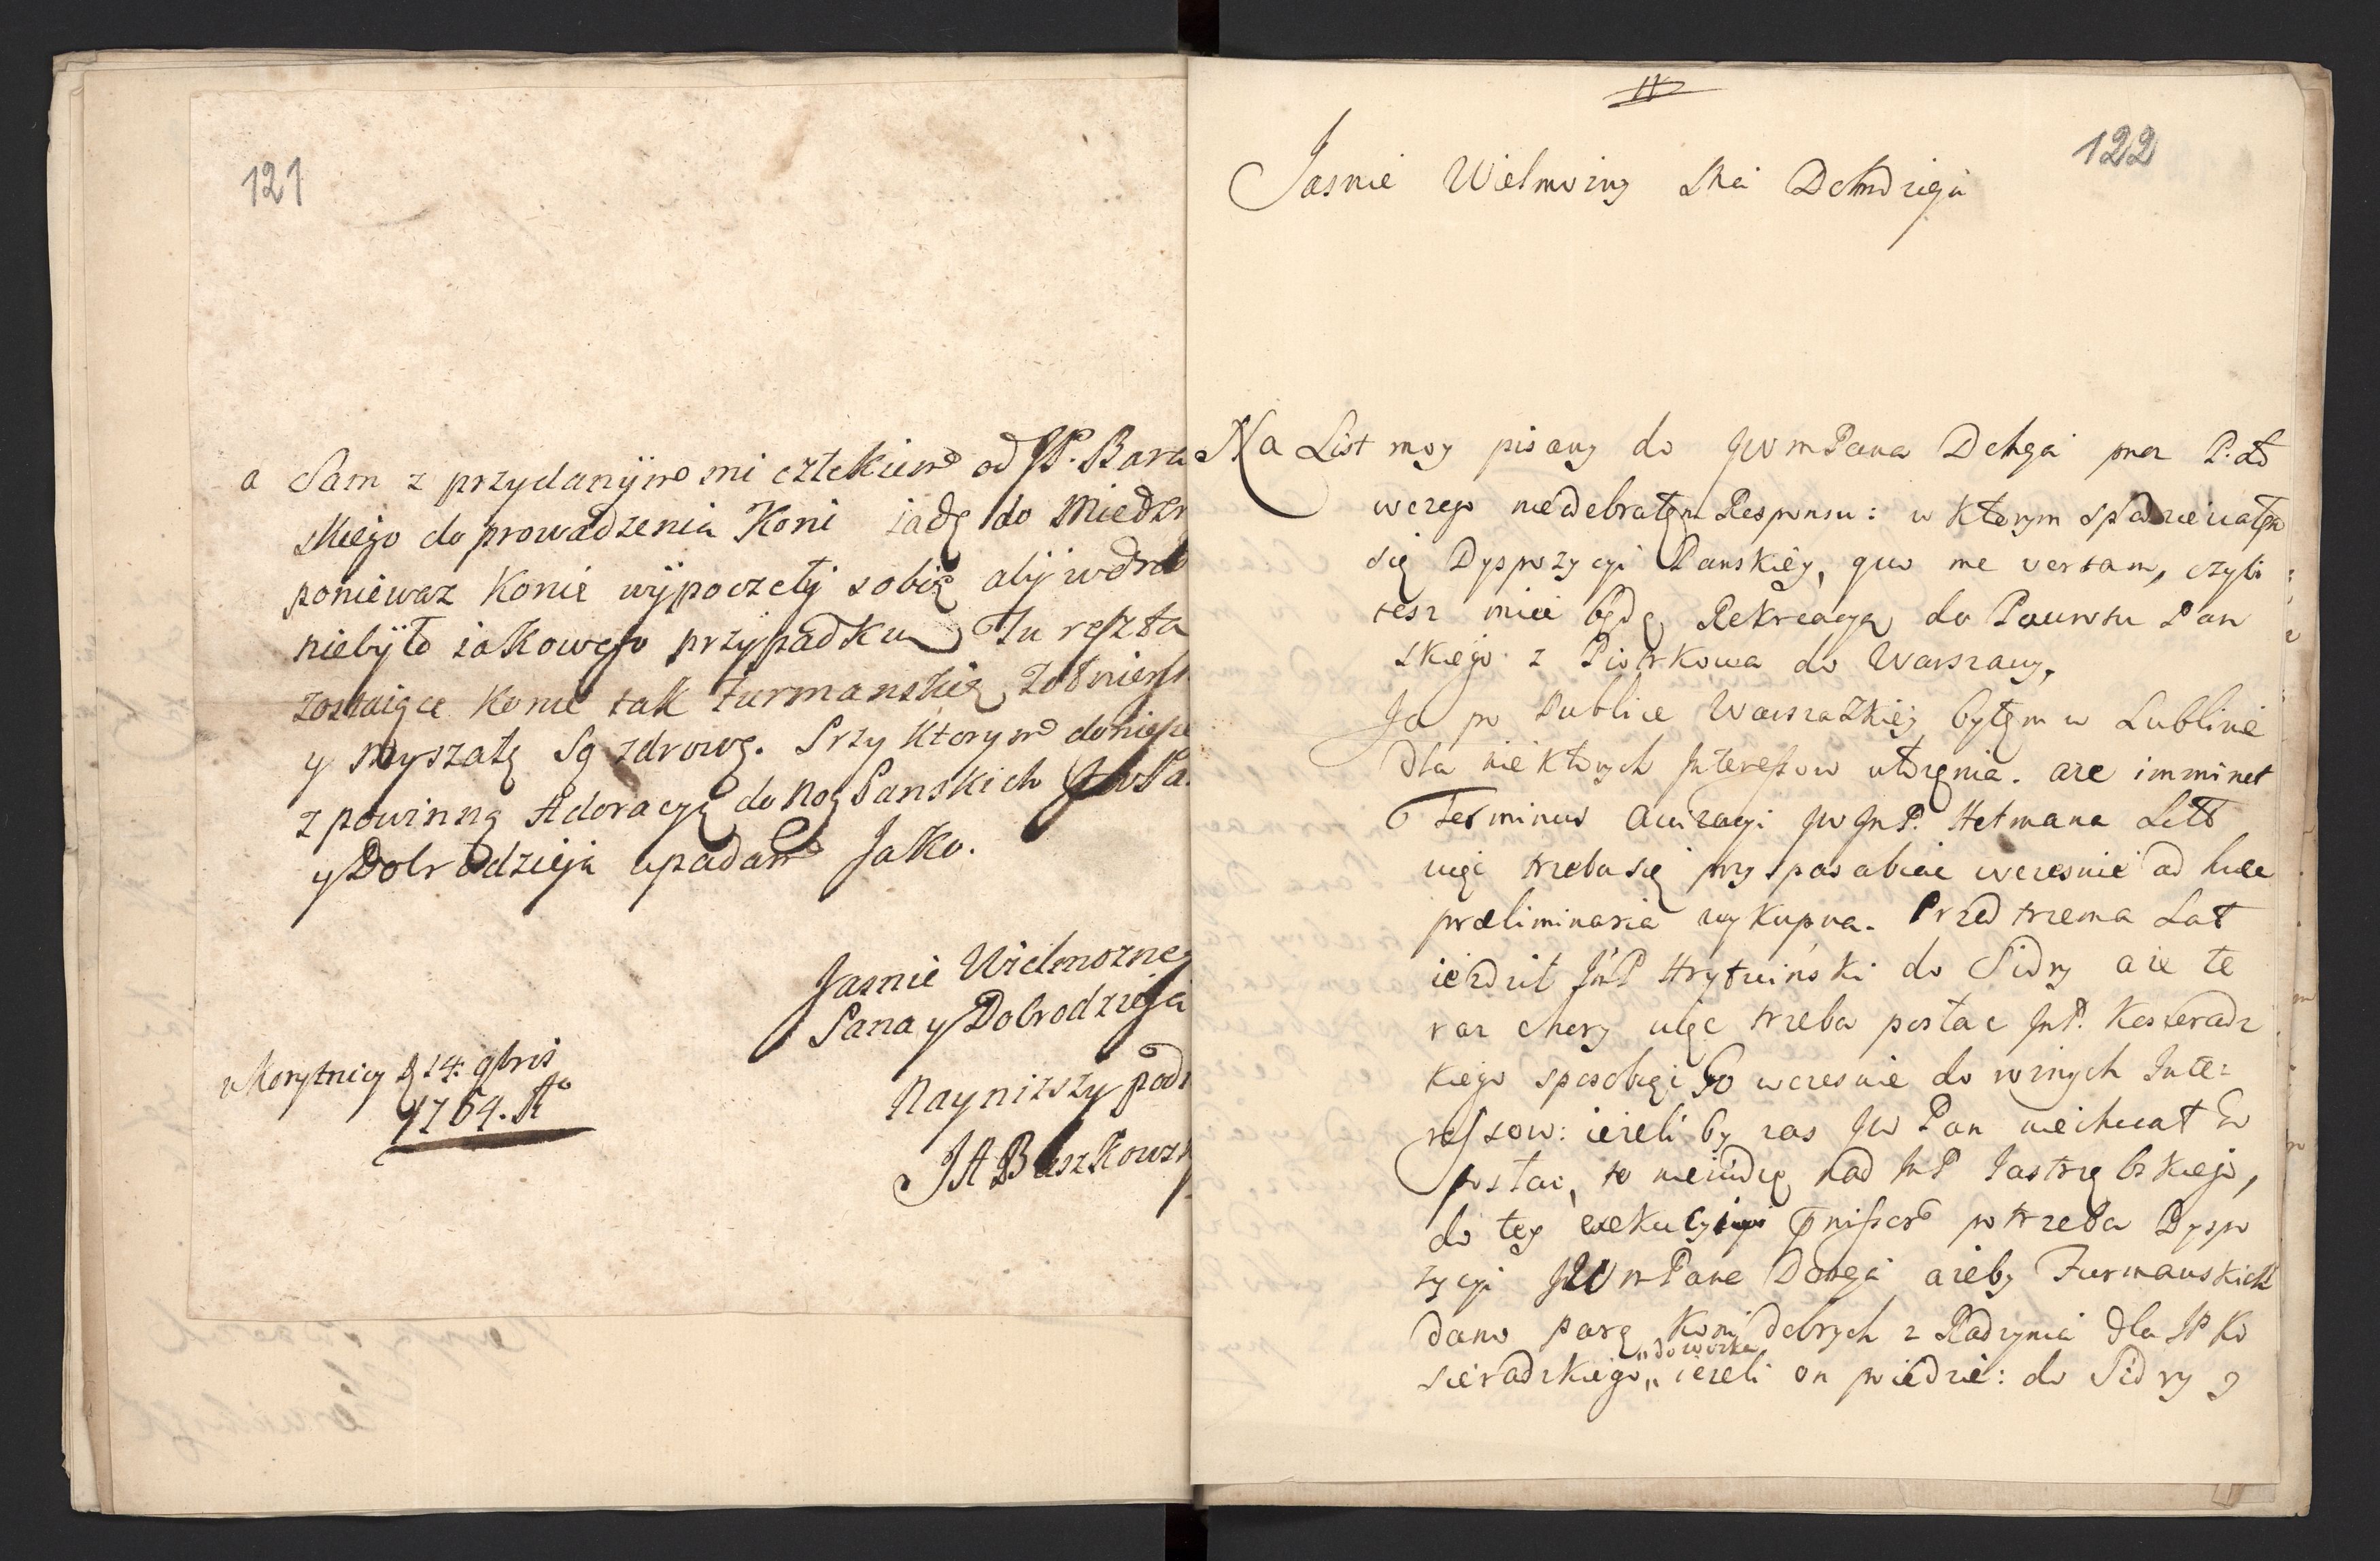 121
a Sam z przydanym mi człekiem od JP. Bara
skiego do prowadzenia Koni iadę do Miedzr
poniewaz Konie wypoczęły sobie aby wdro
niebyło iakowego przypadku Tu reszta
zostaiące Konie tak Furmanskie, Zołniers
y Myszate są zdrowe. Przy Ktorym doniesie
z powinną Adoracyą do Nog Panskich JWPa
y Dobrodzieja upadam Jako.
Jasnie Wielmozneg
Pana y Dobrodzieja
Naynizszy pod
JA Buszkowsk
z Korytnicy d 14. 9bris
1764. Ao
122
Jasnie Wielmozny Dobrodzieja
Na List moy pisany do JWmPana Dobga prez
wczego nieodebrałem Responsu: w Ktorym spodziewałem
się Dyspozycyi Panskiey, quo me vertam, czyli
tesz miec będę Rekreacyą do Pan
skiego z Piotrkowa do Warszawy,
Ja po Publice Warszaskiey byłem w Lublinie
dla niektorych Interessow. aze imminet
Terminus JWJmP. Hetmana Litt
więc trzeba się przysposabiac wczesnie ad huec
præliminaria wykupna. Przed trzema Lat
iezdził JmP Hrytwinski do Sidry aze te
raz chory więc trzeba posłac JmP. Kossieradz
kiego wczesnie do innych Inte=
ressow: iezeli by zas JW Pan niechciał Eo
posłac, to nad JmP Jastrzębskiego,
do tey potrzeba Dyspo
zycyi JWmPana Dobga azeby Furmanskich
dano parę Koni dobrych z Radzynia dla JP Ko
„do wozka
sieradzkiego„ iezeli on poiedzie: do Sidry